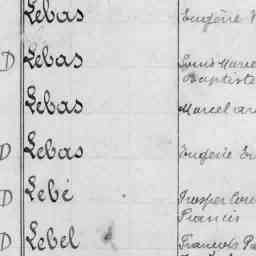 Lebas Eugène
D Lebas Louis Marie
Baptiste
Lebas Marcel
D Lebas Eugène
D Lebé Prosper
Francis
D Lebel François